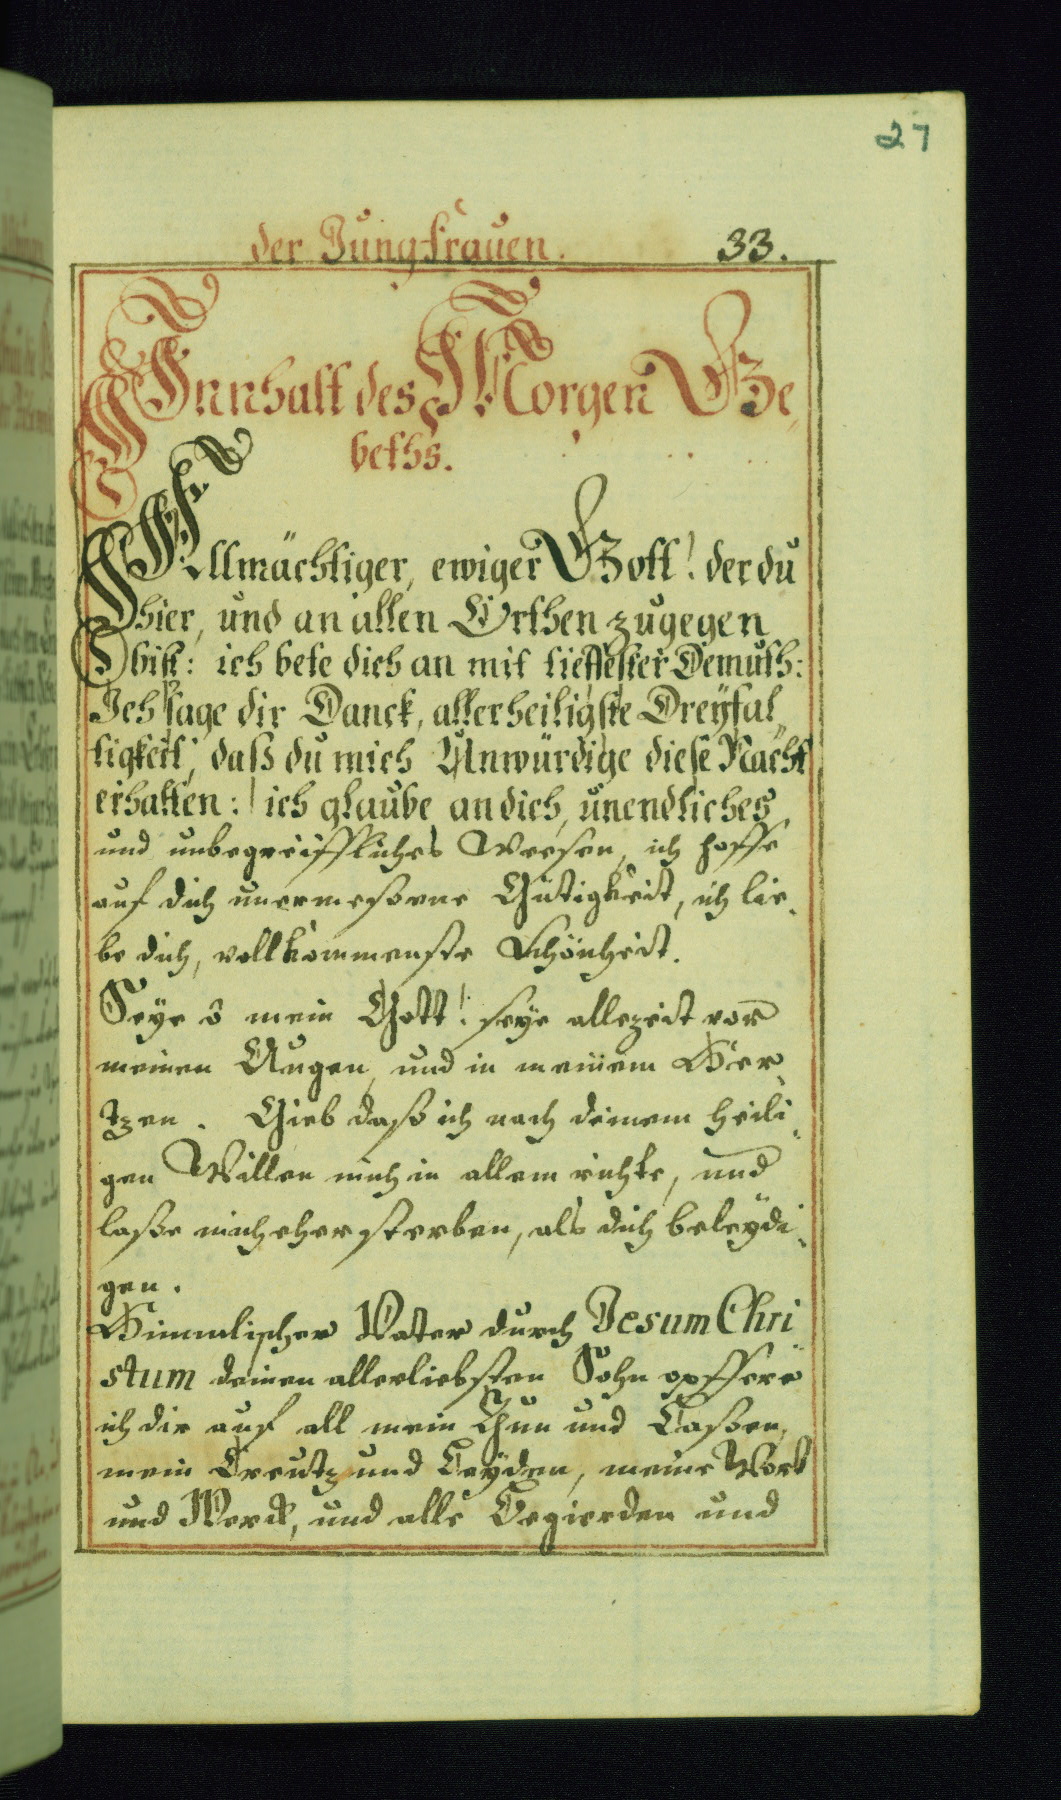 27
der Jungfrauen. 33.
Innhalt des Morgen Ge,
beths.
Allmächtiger, ewiger Gott! der du
hier, und an allen Orthen zugegen
bist: ich bete dich an mit tieffester Demuth:
Ich sage dir Danck, allerheiligste Dreyfal,
tigkeit, daß du mich Unwürdige diese Nacht
erhalten: ich glaube an dich, unendliches
und unbegreiffliches Weesen, ich hoffe
auf dich unermeßene Gütigkeit, ich lie,
be dich, vollkommenste Schönheit.
Seye ô mein Gott! seye allezeit vor
meinen Augen, und in meinem Her,
tzen. Gieb daß ich nach deinem heili,
gen Willen mich in allem richte, und
laße mich eher sterben, als dich beleydi,
gen.
Himmlischer Vater durch Jesum Chri
stum deinen allerliebsten Sohn opffere
ich dir auf all mein Thun und Laßen,
mein Creutz und Leyden, meine Wort
und Werck, und alle Begierden und